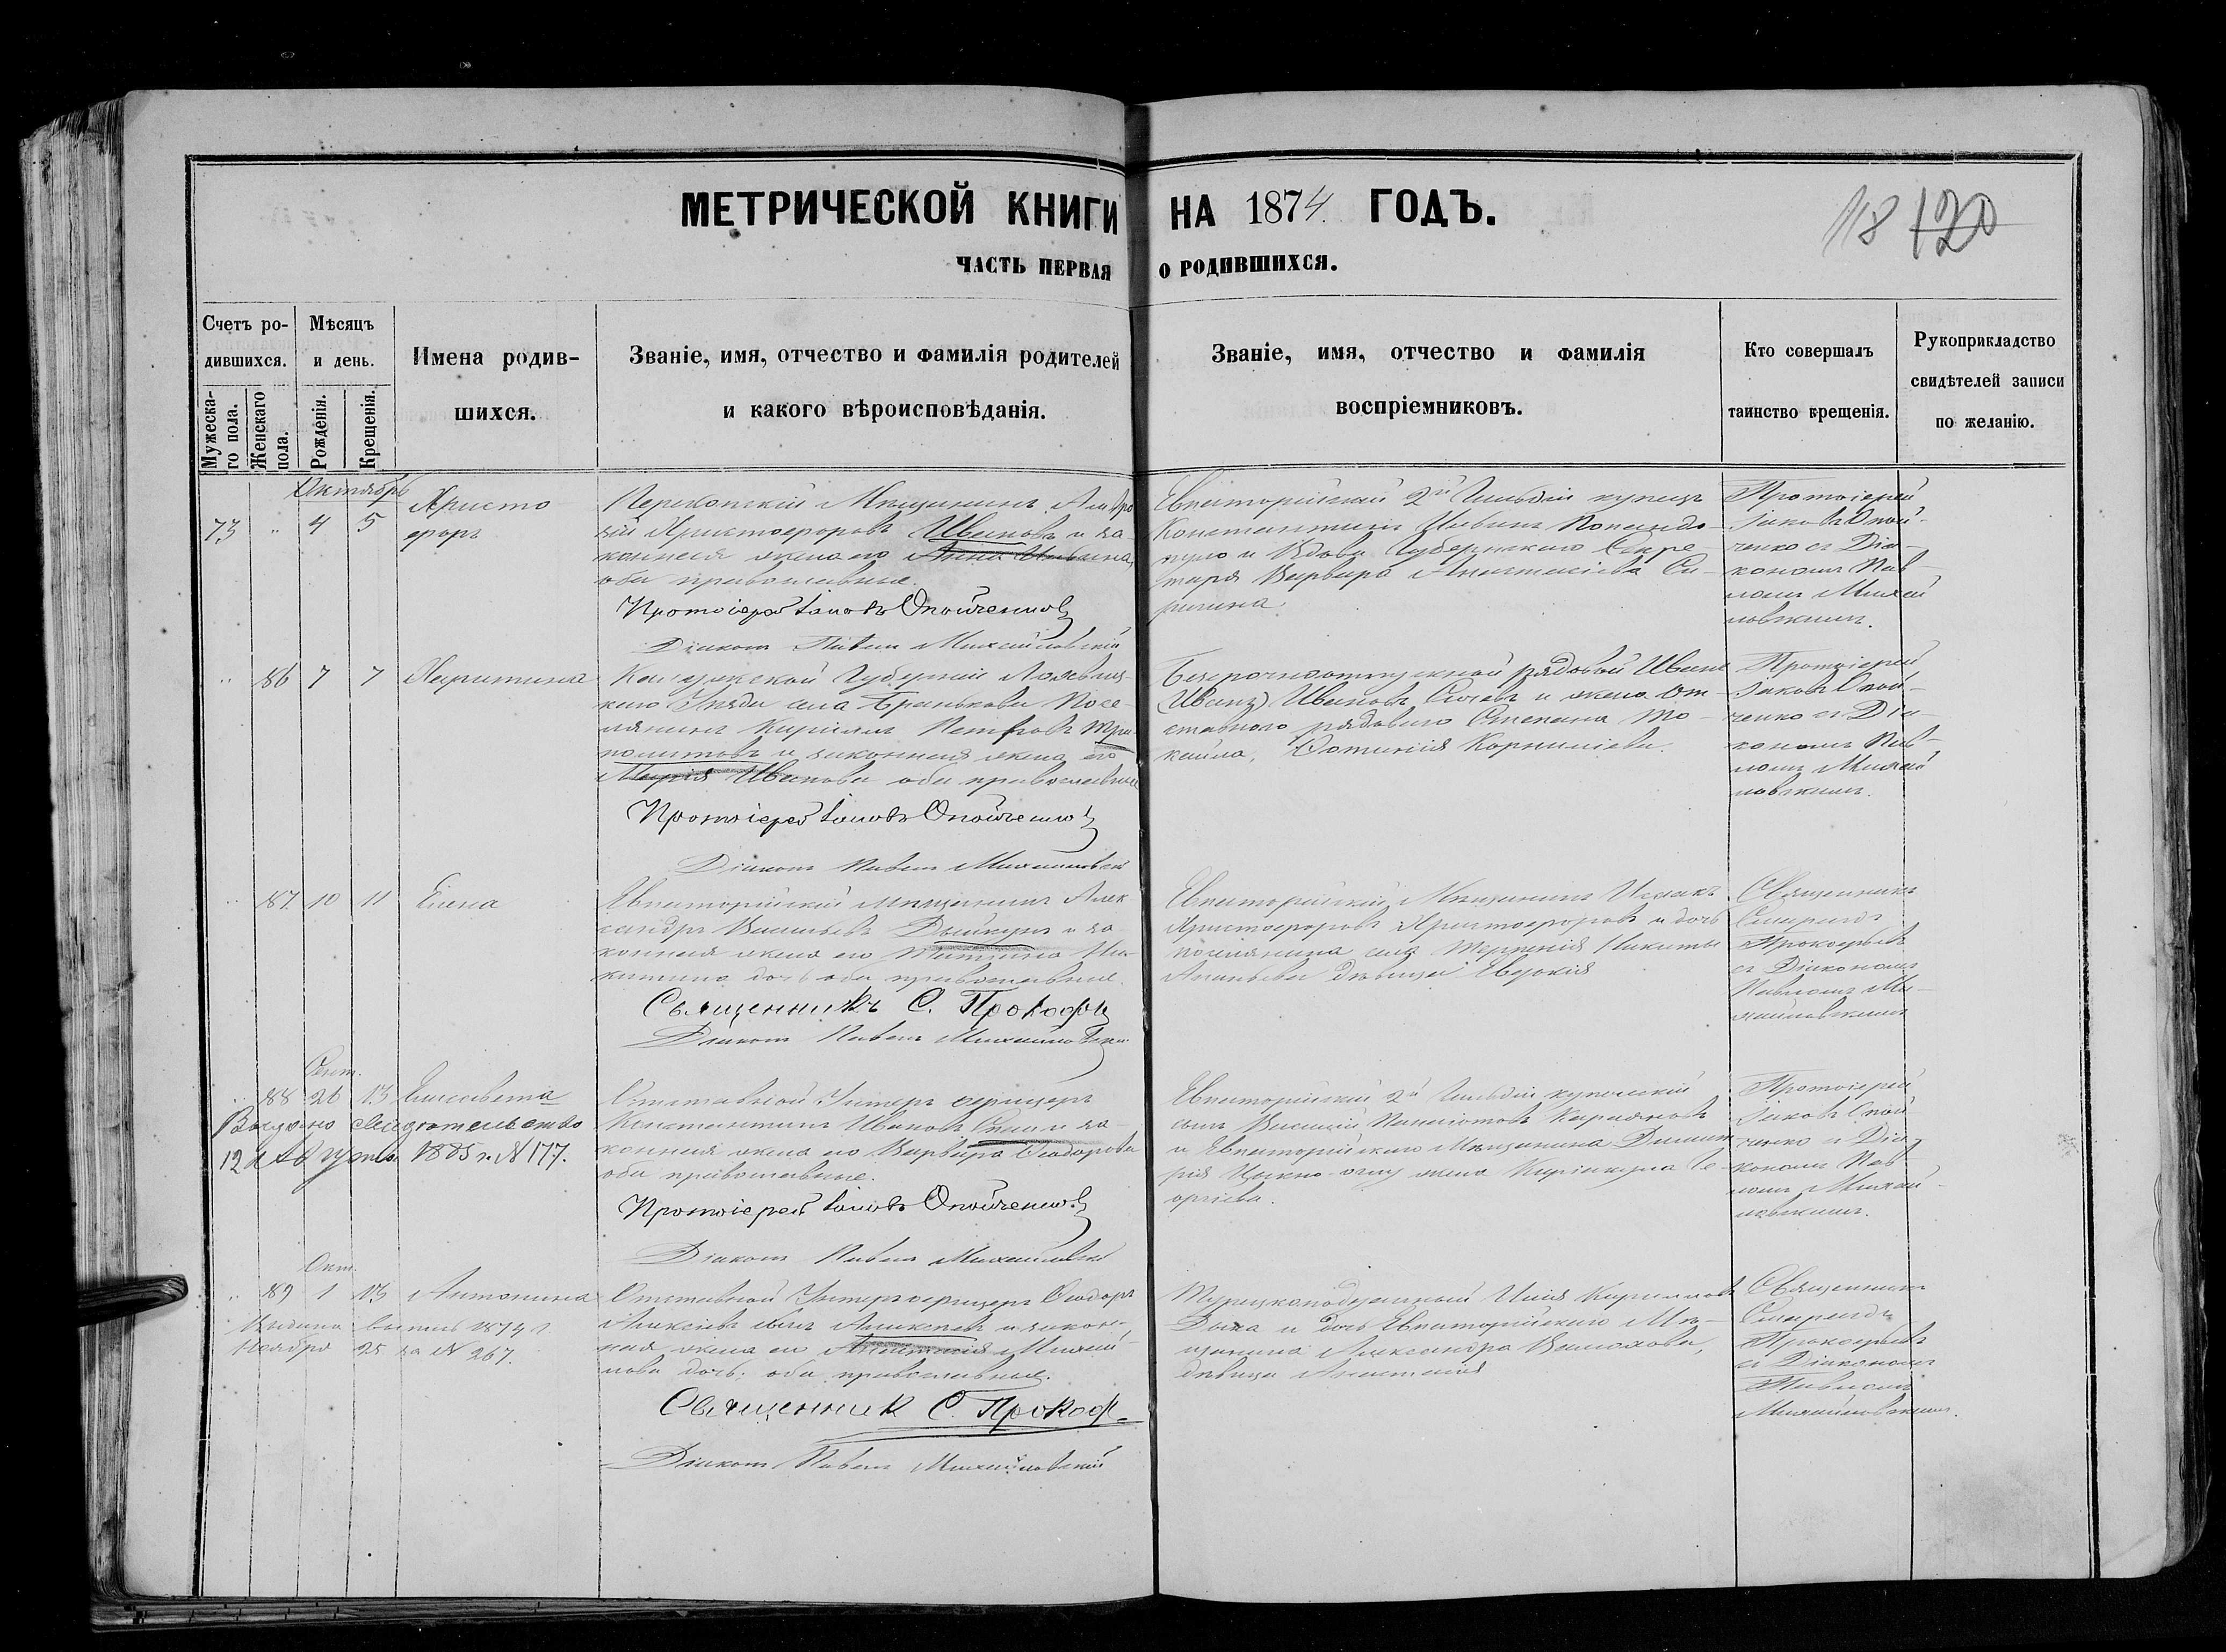 МЕТРИЧЕСКОЙ КНИГИ НА 1874 ГОДЪ.
118 120
ЧАСТЬ ПЕРВАЯ О РОДИВШИХСЯ.
Счетъ ро-
дившихся.
Мужеска-
го пола.
Женскаго
пола.
Мѣсяцъ
и день.
Рожденія.
Крещенія.
Имена родив-
шихся.
Званіе, имя, отчество и фамилія родителей
и какого вѣроисповѣданія.
Званіе, имя, отчество и фамилія
воспріемниковъ.
Кто совершалъ
таинство крещенія.
Рукоприкладство
свидѣтелей записи
по желанію.
Октябрь
73 " 4 5
Христо
форъ
Перекопскій Мѣщанинъ
Христофоровъ Ивановъ и за
конная жена его Анна
оба православные.
Протоіерей Іаковъ Опойченко
Діаконъ Павелъ Михайловскій
Евпаторійскій 2й Гильдіи купецъ
Константинъ
и Вдова Губернскаго Секре-
таря Варвара Анастасіева
Протоіерей
Іаковъ Опой-
ченко съ Діа-
кономъ Пав-
ломъ Михай
ловскимъ.
" 86 7 7
Харитина
Калужской Губерніи
каго Уѣзда села Посе-
лянинъ Петровъ Три-
политовъ и законная жена его
Марія Иванова оба православные
Протоіерей Іаковъ Опойченко
Діаконъ Павелъ Михайловскій
Безсрочноотпускной рядовой Иванъ
(Иванъ) Ивановъ и жена от-
ставного рядового Степана
Фотинія Корниліева.
Протоіерей
Іаковъ Опой-
ченко съ Діа-
кономъ Пав-
ломъ Михай
ловскимъ.
" 87 10 11
Елена
Евпаторійскій мѣщанинъ Алек
сандръ Васильевъ и за-
конная жена его Татіана Ни-
китина дочь оба православные.
Священникъ С. Прокофь
Діаконъ Павелъ Михайловскій
Евпаторійскій Мѣщанинъ Исаакъ
Христофоровъ Христофоровъ и дочь
поселянина села Терпенія Никиты
Ананьева дѣвица Евдокія
Священникъ
Спиридъ
Прокофьевъ
съ Діакономъ
Павломъ Ми-
хайловскимъ
Сент.
" 88 26 13
Елисавета
Выдано свидѣтельство
12 Августа 1885 г. № 177.
Отставной Унтеръ офицеръ
Константинъ Ивановъ и за-
конная жена его Варвара Ѳеодорова
оба православные.
Протоіерей Іаковъ Опойченко
Діаконъ Павелъ Михайловскій
Евпаторійскій 2й Гильдіи купеческій
сынъ Василій
и Евпаторійскаго Мѣщанина Димит
рія жена Ге-
оргіева.
Протоіерей
Іаковъ Опой
ченко съ Діа-
кономъ Пав-
ломъ Михай-
ловскимъ.
Окт.
" 89 1 13
Антонина
Выдана выпись 1874 г.
Ноября 25 за № 267.
Отставной Унтеръ офицеръ Ѳеодоръ
Алексѣевъ сынъ Алексѣевъ и закон-
ная жена его Анастасія Михай-
лова дочь; оба православные.
Священник С. Прокоф
Діаконъ Павелъ Михайловскій
Турецкоподданный Илія Кирилловъ
и дочь Евпаторійскаго Мѣ-
щанина Александра
дѣвица Анастасія
Священникъ
Спиридъ
Прокофьевъ
съ Діакономъ
Павломъ
Михайловскимъ.